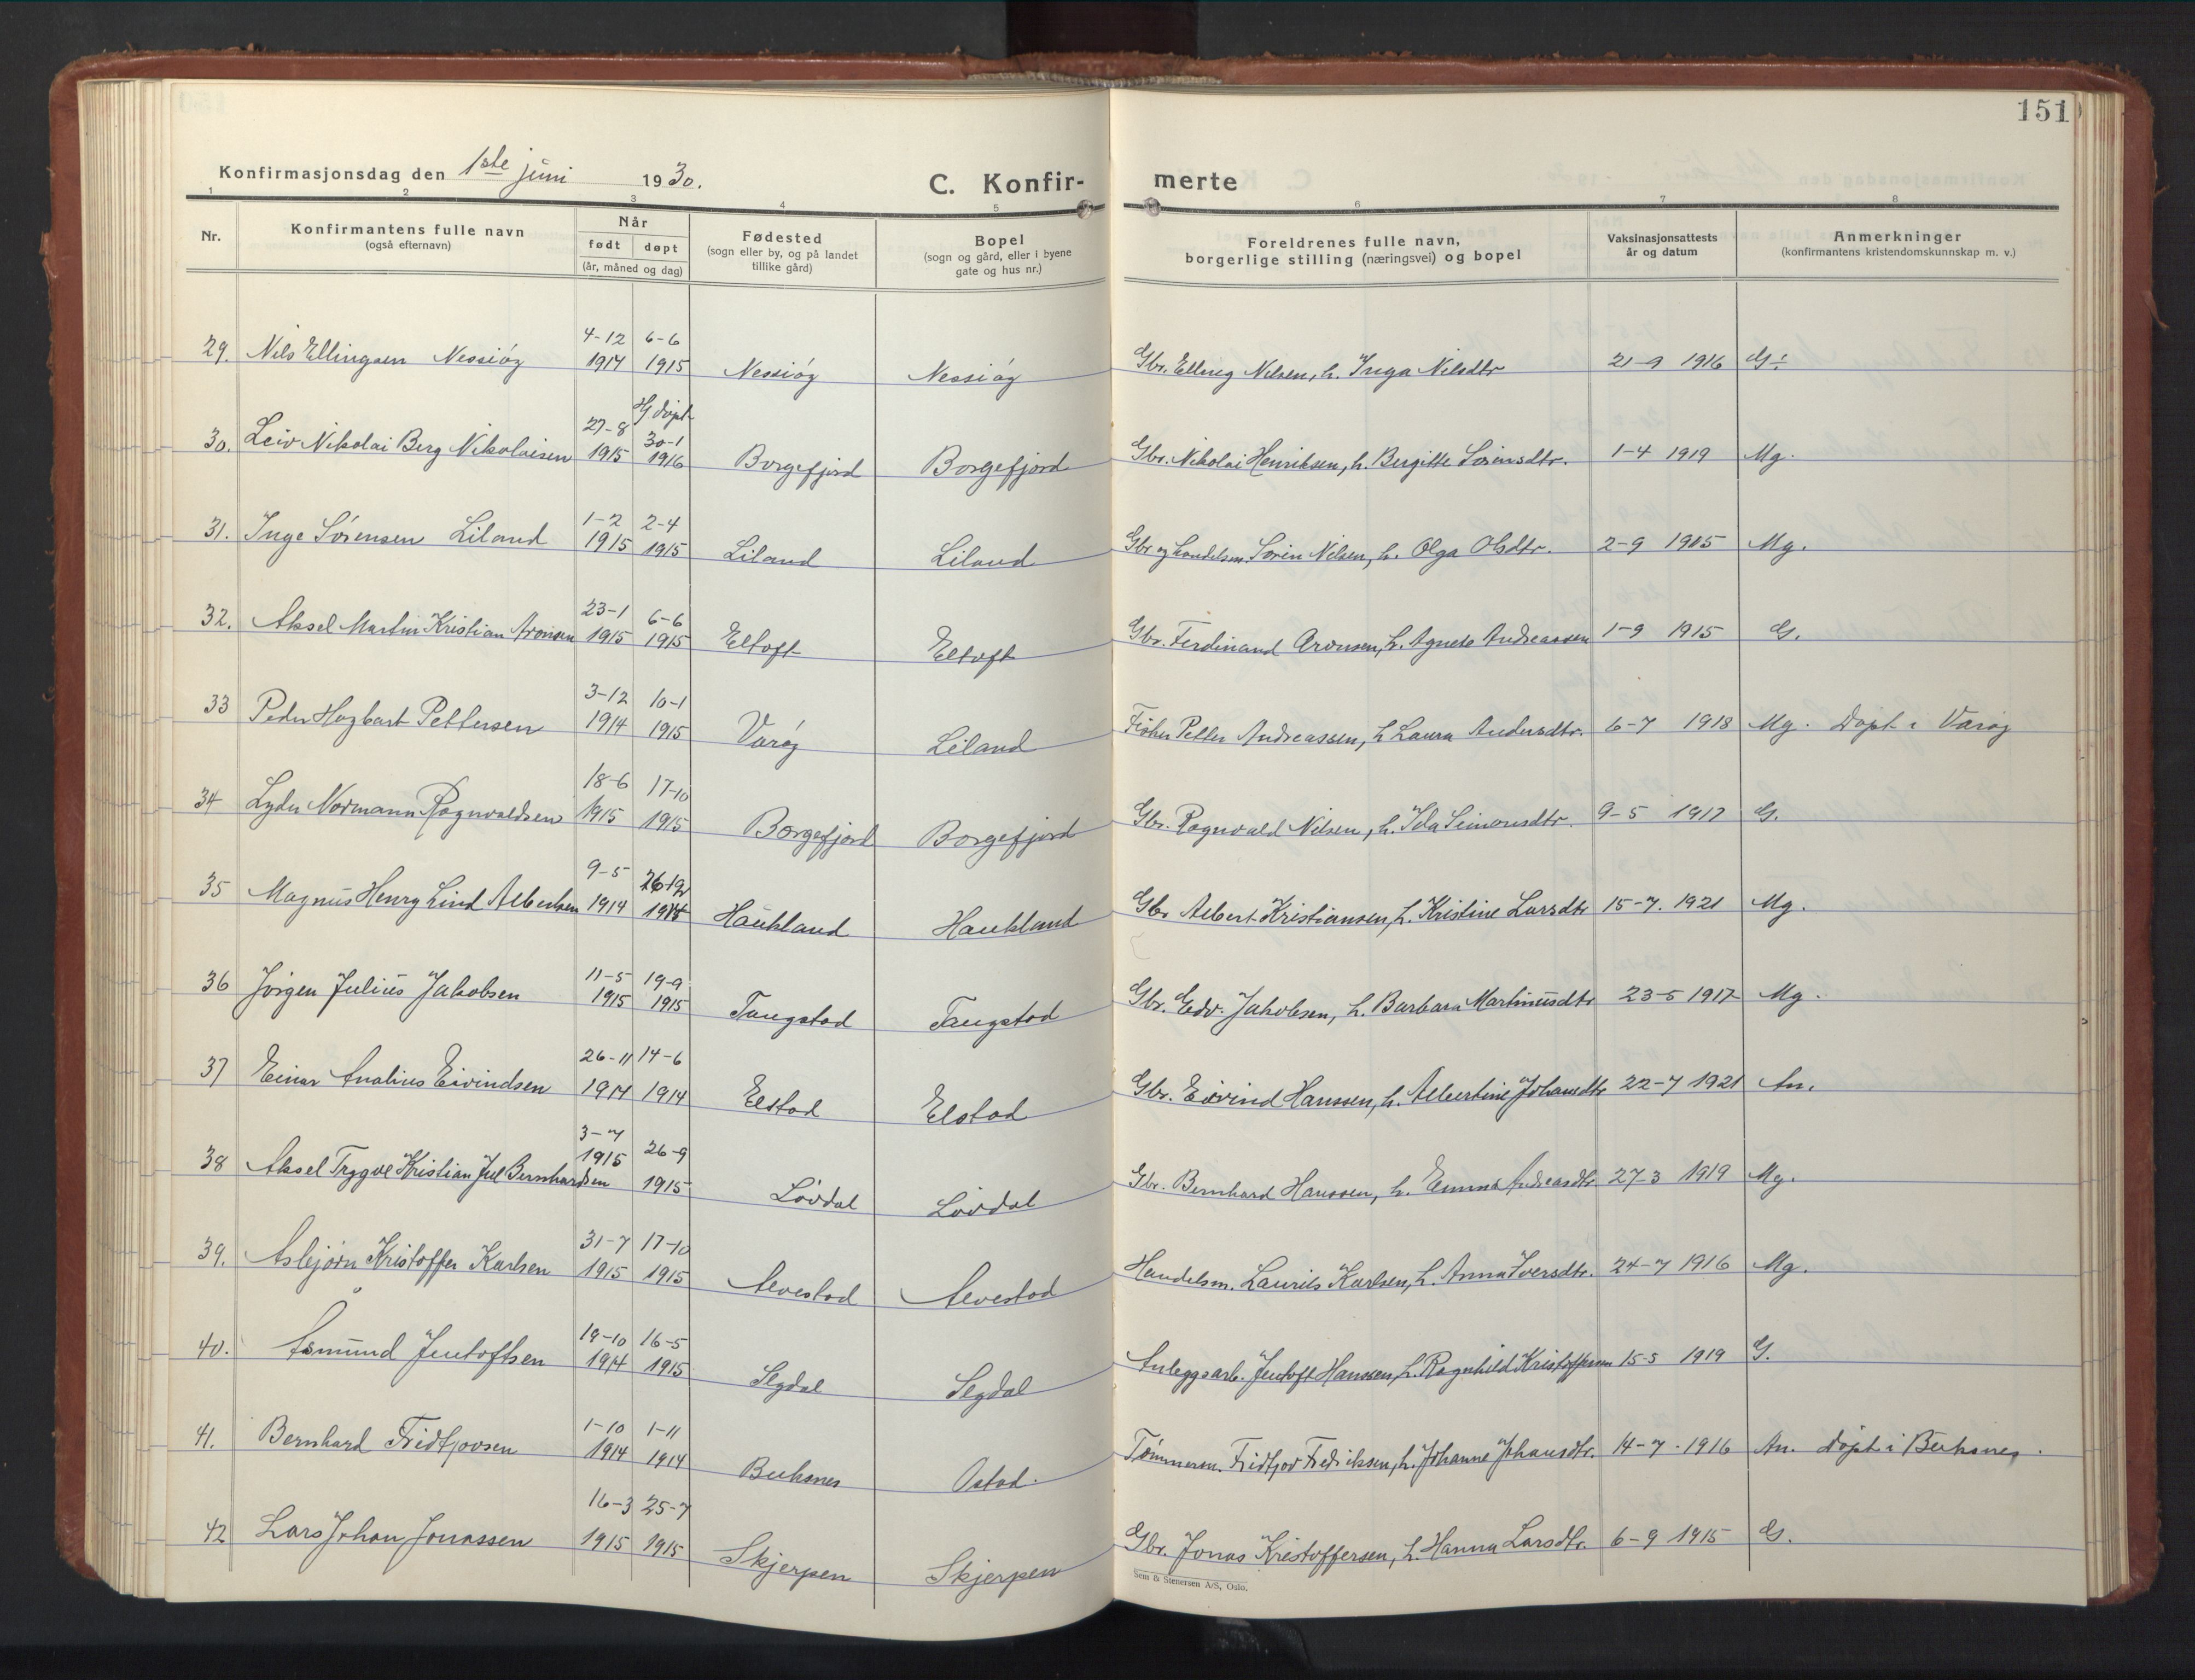 151
Konfirmasjonsdag den 1ste juni 1930.
C. Konfir- merte
1 2 3 4 5 6 7 8
Nr.
Konfirmantens fulle navn
(også efternavn)
Når
født døpt
(år, måned og dag)
Fødested
(sogn eller by, og på landet
tillike gård)
Bopel
(sogn og gård, eller i byene
gate og hus nr.)
Foreldrenes fulle navn,
borgerlige stilling (næringsvei) og bopel
Vaksinasjonsattests
år og datum
Anmerkninger
(konfirmantens kristendomskunnskap m. v.)
4-12 6-6
29. Nils Ellingsen Nessiøy 1914 1915 Nessiøy Nessiøy Gbr. Elling Nilsen, h. Inga Nilsdtr 21-9 1916 G:
27-8 Hj. døpt 30-1
30. Leiv Nikolai Berg Nikolaisen 1915 1916 Borgefjord Borgefjord Gbr. Nikolai Henriksen, h. Bergitte Sörensdtr. 1-4 1919 Mg.
1-2 2-4
31. Inge Sörensen Liland 1915 1915 Liland Liland Gbr og handelsm. Sörin Nilsen, h. Olga Olsdtr. 2-9 1915 Mg.
23-1 6-6
32. Aksel Martin Kristian Aronsen 1915 1915 Eltoft Eltoft Gbr. Ferdinand Aronsen, h. Agnete Andreassen 1-9 1915 G.
3-12 10-1
33 Peder Hagbart Pettersen 1914 1915 Varøy Liland Fisker Petter Andreassen, h Laura Andersdtr. 6-7 1918 Mg. Døpt i Varøy
18-6 17-10
34 Lyder Normann Ragnvaldsen 1915 1915 Borgefjord Borgefjord Gbr. Ragnvald Nilsen, h. Ida Simonsdtr. 9-5 1917 G.
9-5 26-12
35 Magnus Henry Lind Albertsen 1914 1914 Haukland Haukland Gbr Albert Kristiansen, h. Kristine Larsdtr 15-7. 1921 Mg.
11-5 19-9
36 Jørgen Julius Jakobsen 1915 1915 Tangstad Tangstad Gbr. Edv. Jakobsen, h. Barbara Martinusdtr 23-5 1917 Mg.
26-11 14-6
37 Einar Analius Eivindsen 1914 1914 Elstad Elstad Gbr. Eivind Hanssen, h. Albertine Johansdtr 22-7 1921 An.
3-7 26-9
38 Aksel Trygve Kristian Jul Bernhardsen 1915 1915 Lövdal Lövdal Gbr. Bernhard Hanssen, h. Emma Andreasdtr 27-3 1919 Mg.
31-7 17-10
39. Asbjørn Kristoffer Karlsen 1915 1915 Alvestad Alvestad Handelsm. Laurits Karlsen, h. Anna Iversdtr. 24-7 1916 Mg.
19-10 16-5
40. Åsmund Jentoftsen 1914 1915 Segdal Segdal Anleggsarb. Jentoft Hanssen, h. Ragnhild Kristoffersen 15-5 1919 G.
1-10 1-11
41. Bernhard Fridtjovsen 1914 1914 Buksnes Ostad. Tømmerm. Fridtjov Fredriksen, h. Johanne Johansdtr. 14-7. 1916 An. døpt i Buksnes.
16-3 25-7
42 Lars Johan Jonassen 1915 1915 Skjerpen Skjerpen Gbr. Jonas Kristoffersen, h. Hanna Larsdtr. 6-9 1915 G.
Sem & Stenersen A/S, Oslo.